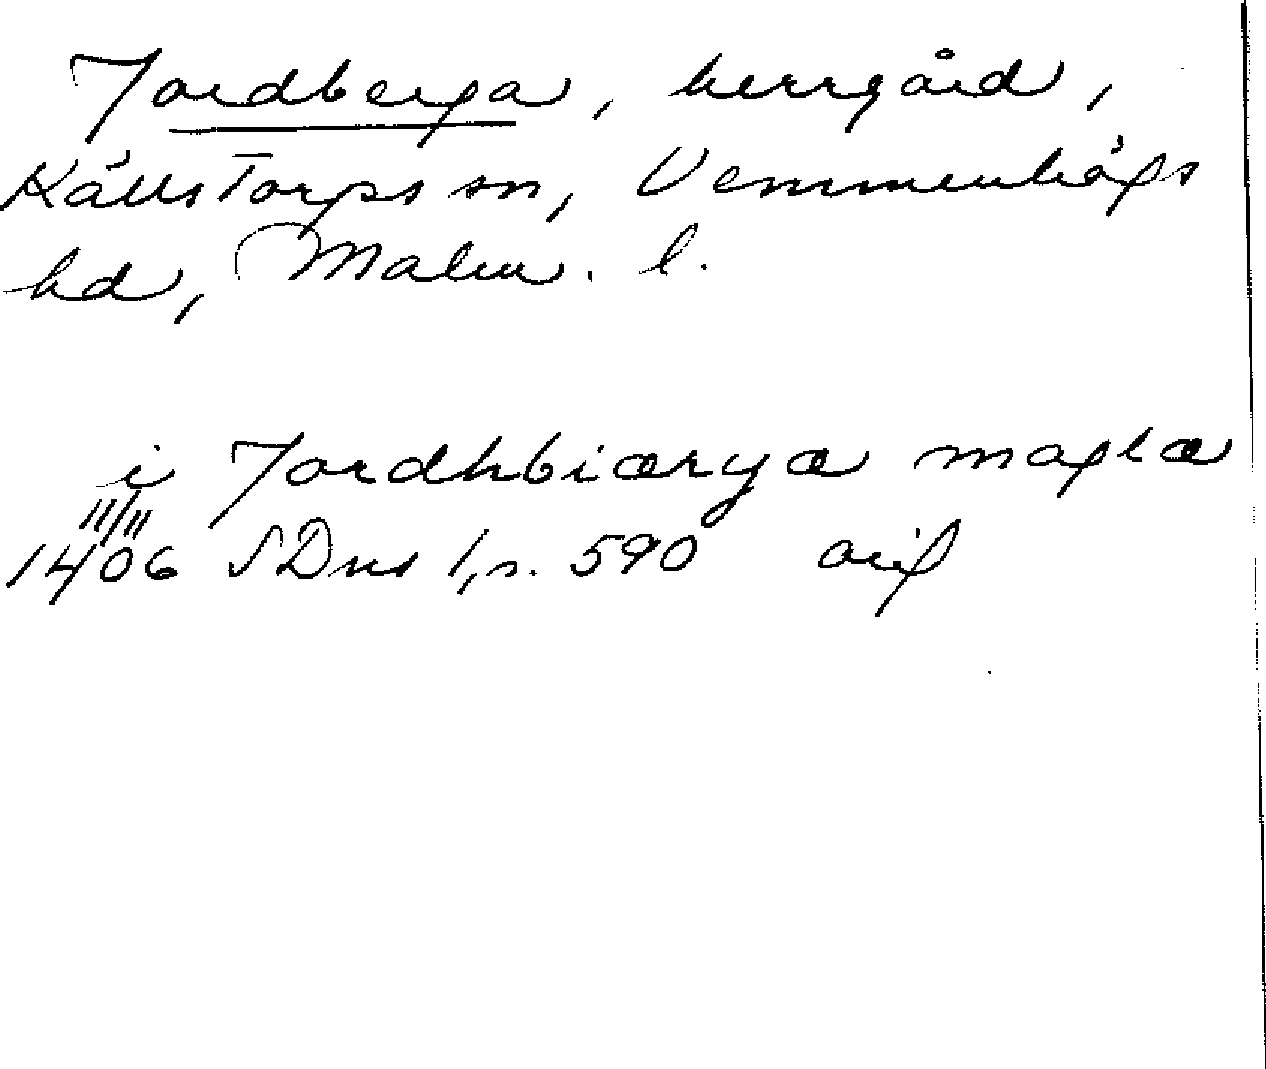 Jordberga, herrgård,
Källstorps sn, Vemmenhögs
hd, Malm. l.
i Jordhbiærgæ maglæ
11/11
1406 SDns 1, s. 590 orig